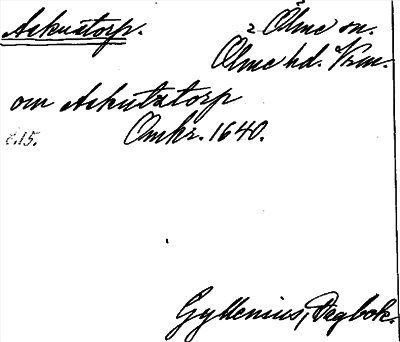 Askustorp. 2 Ölme sn.
Ölme hd. Vrm.
om Askutztorp
s.15. Omkr. 1640.
Gyllenius, Degbok.